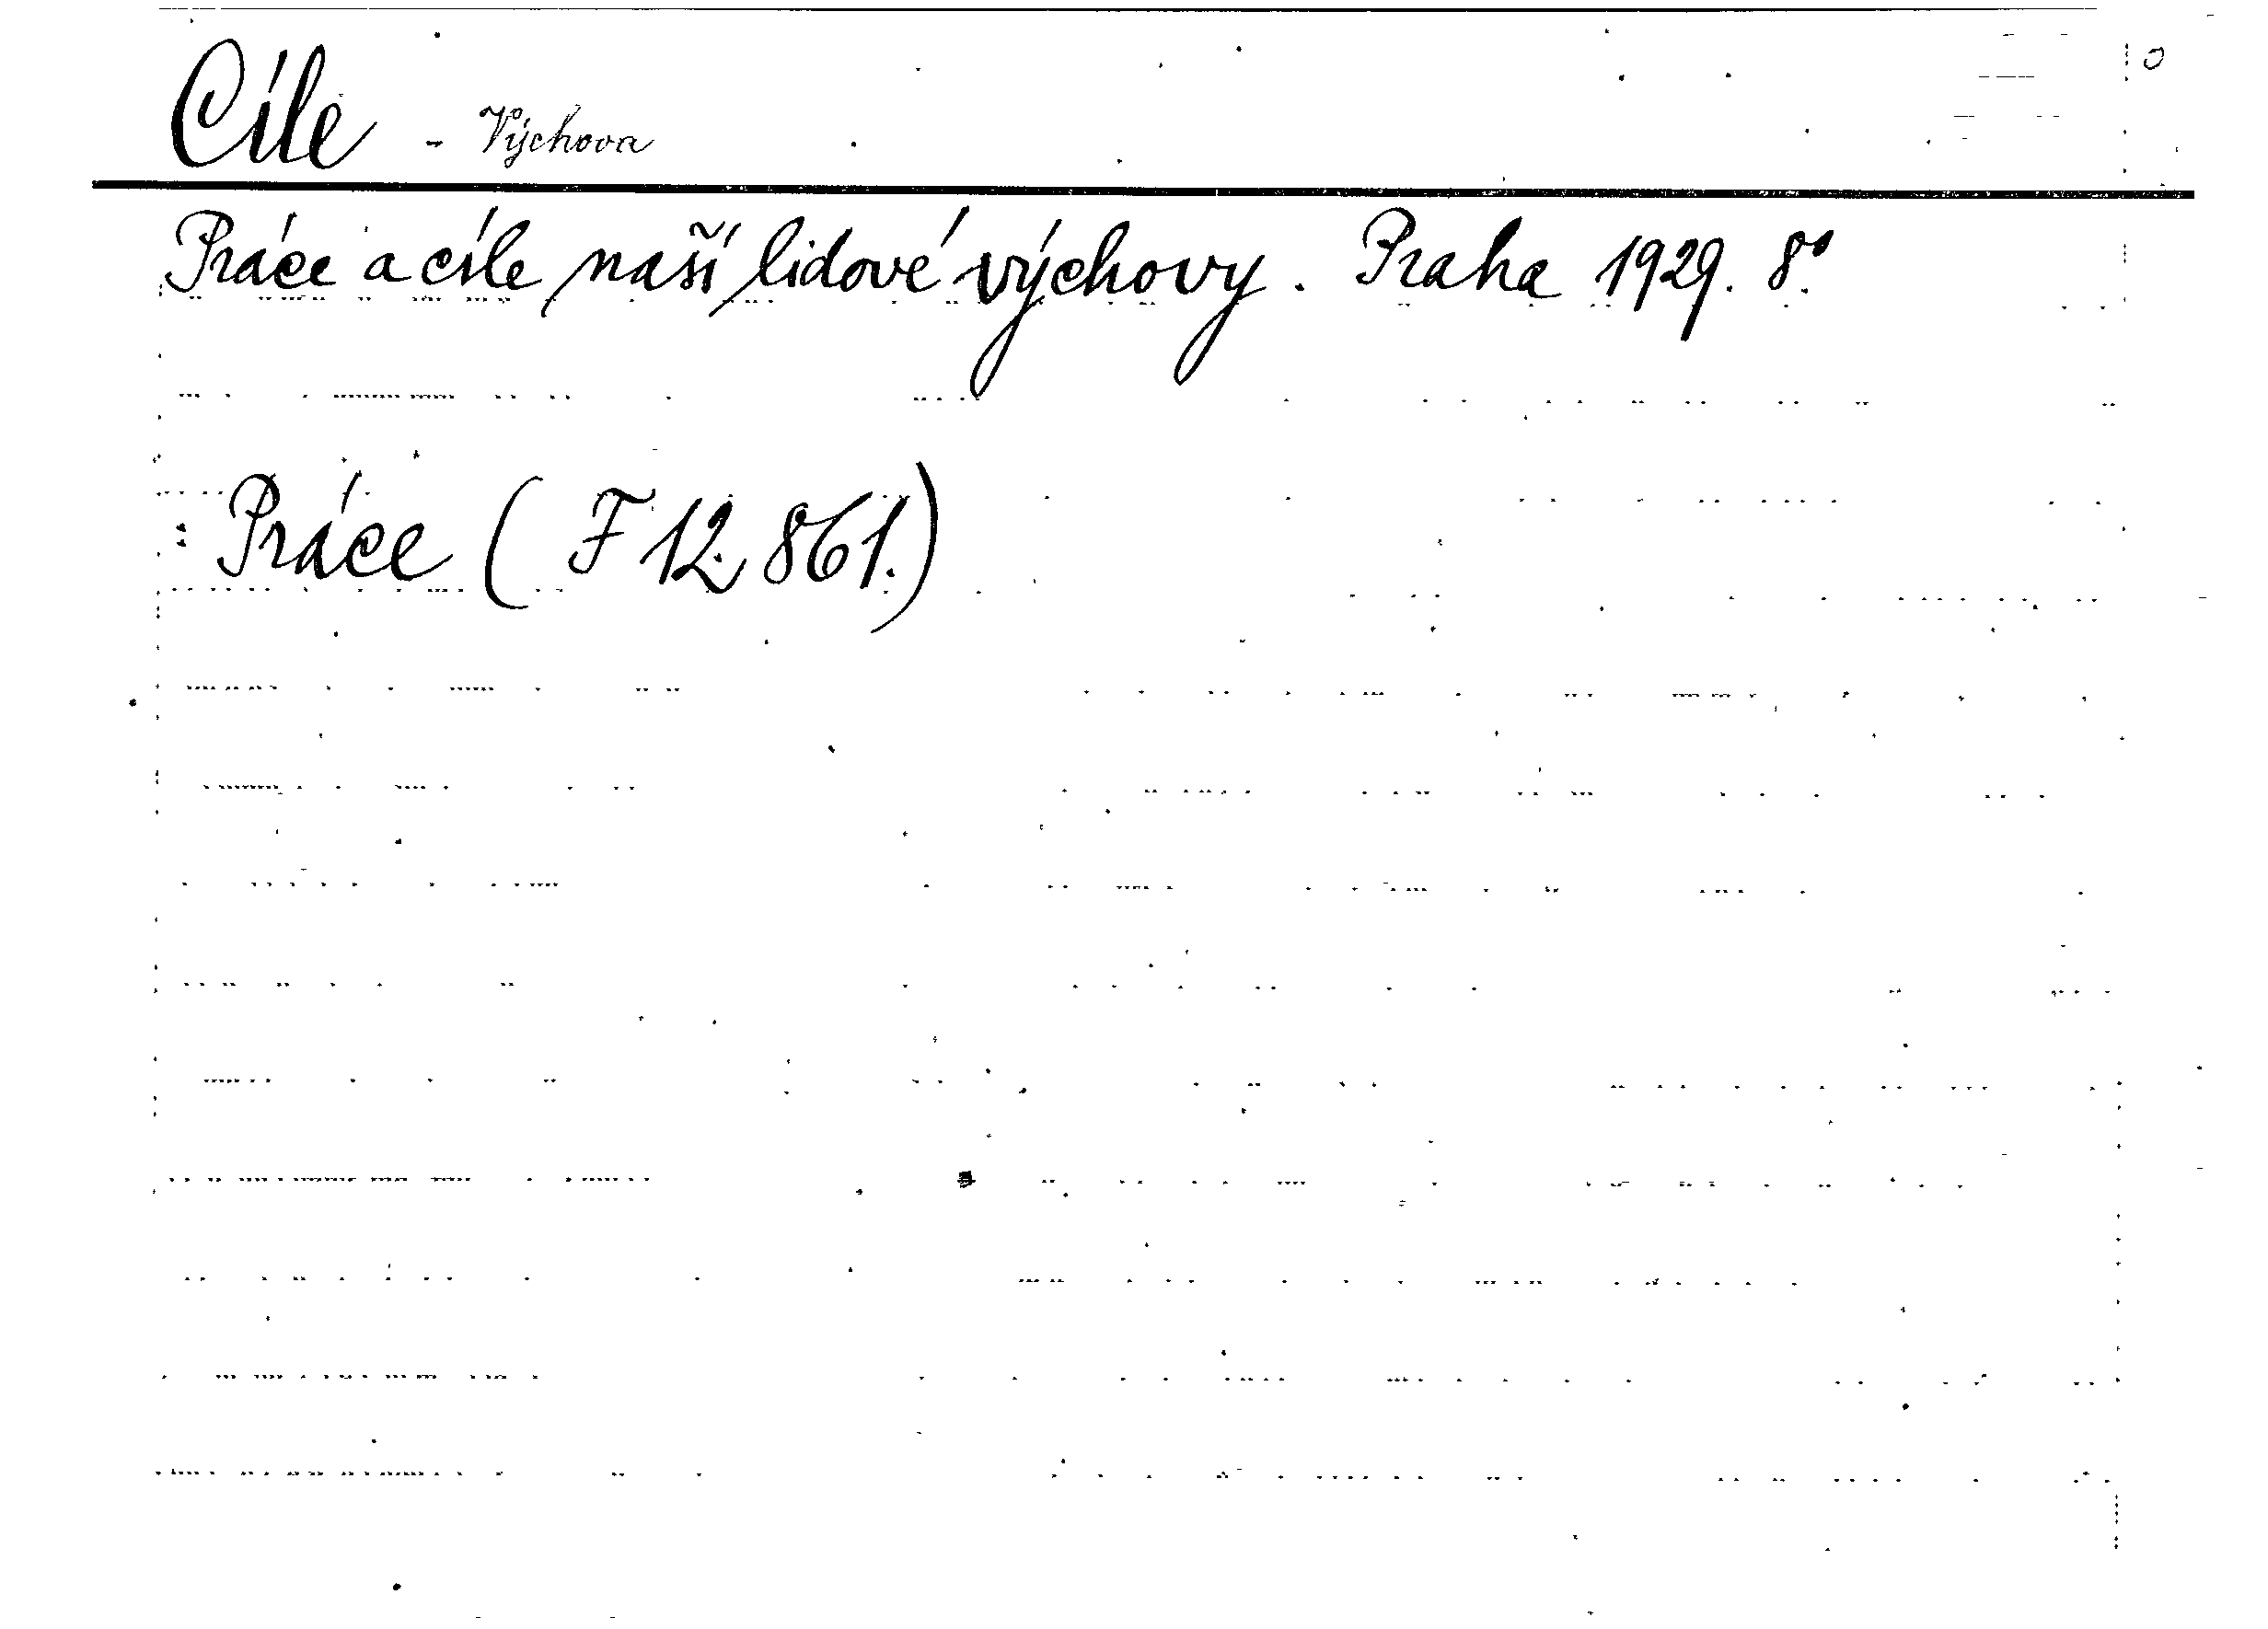 Cíle - Výchova
Práce a cíle naší lidové výchovy. Praha 1929. 8°.
: Práce (F 12.861.)